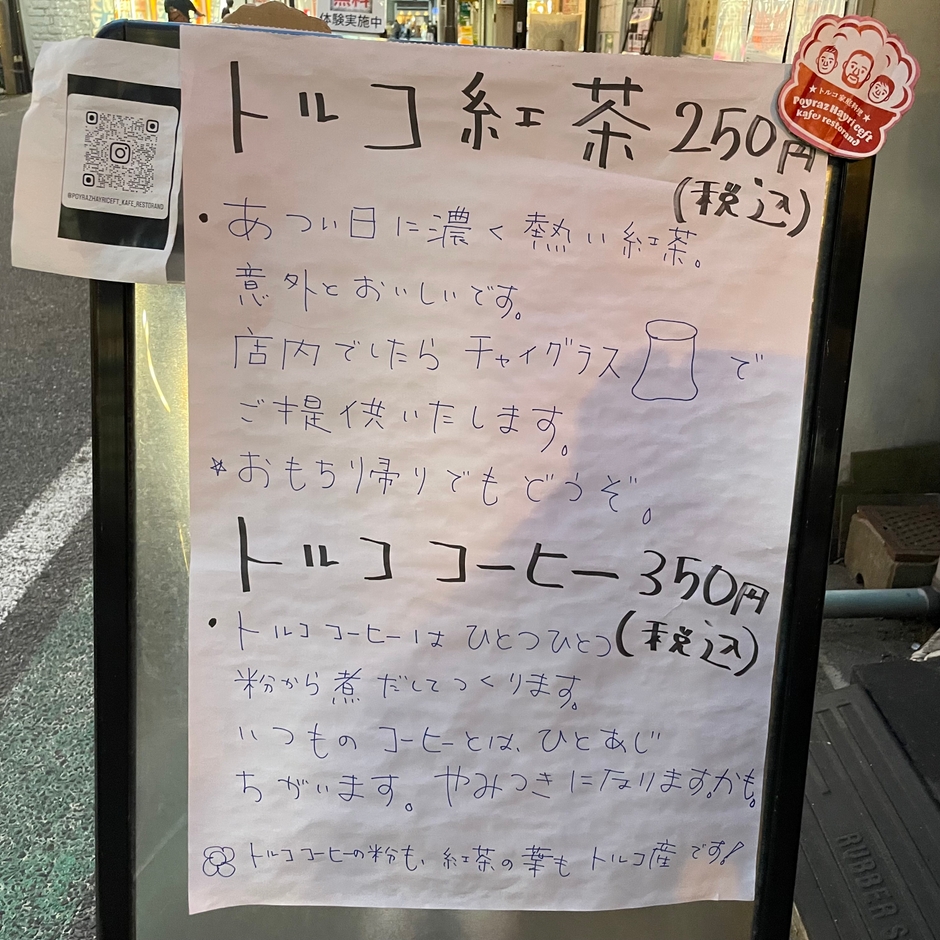 無料
体験実施中
トルコ紅茶 250円
(税込)
★トルコ家庭料理★
Poyraz Hayriceft
Kafe restorand
@POYRAZHAYRICEFT_KAFE_RESTORAND
・あつい日に濃く熱い紅茶。
意外とおいしいです。
店内でしたら チャイグラス で
ご提供いたします。
☆おもちり帰りでも どうぞ。
トルココーヒー 350円
(税込)
・トルココーヒーは ひとつひとつ
粉から煮だしてつくります。
いつものコーヒーとは、ひとあじ
ちがいます。やみつきになります。かも。
トルココーヒーの粉も、紅茶の葉も トルコ産です!
RUBBER S